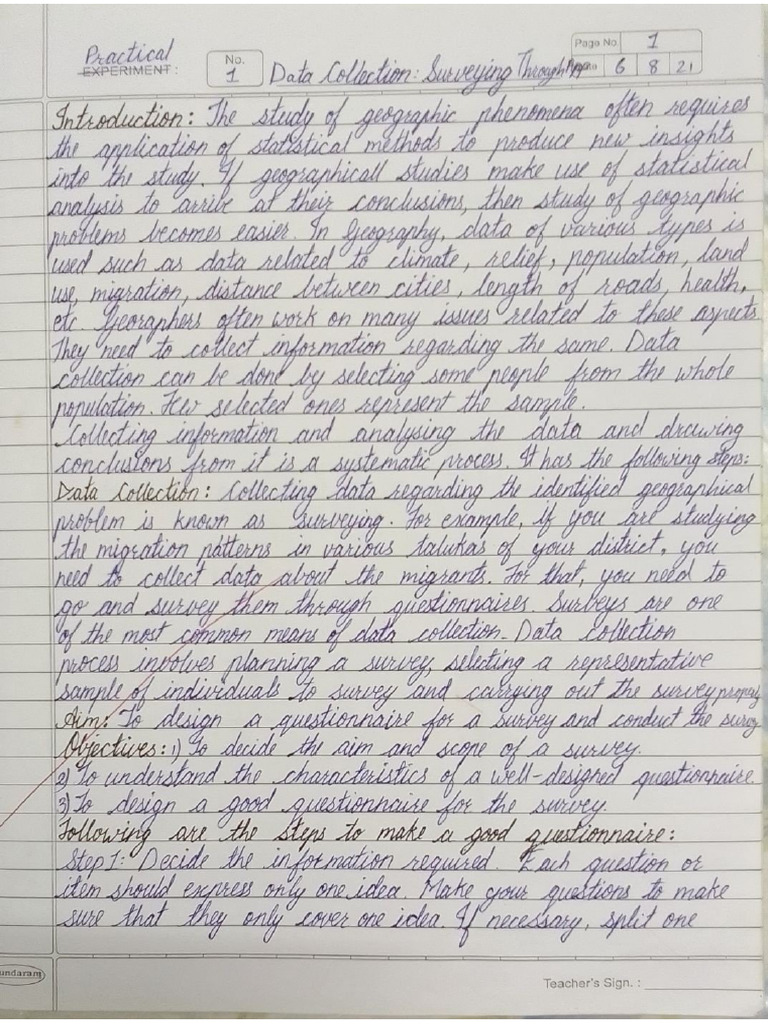 Practical
EXPERIMENT :
No.
1
Data Collection: Surveying Through
Page No. 1
6 8 21
Introduction: The study of geographic phenomena often requires
the application of statistical methods to produce new insights
into the study. If geographicall studies make use of statistical
analysis to arrive at their conclusions, then study of geographic
problems becomes easier. In Geography, data of various types is
used such as data related to climate, relief, population, land
use, migration, distance between cities, length of roads, health,
etc. Georaphers often work on many issues related to these aspects.
They need to collect information regarding the same. Data
collection can be done by selecting some people from the whole
population. Few selected ones represent the sample.
Collecting information and analysing the data and drawing
conclusions from it is a systematic process. It has the following steps:
Data Collection: Collecting data regarding the identified geographical
problem is known as surveying. For example, if you are studying
the migration patterns in various talukas of your district, you
need to collect data about the migrants. For that, you need to
go and survey them through questionnaires. Surveys are one
of the most common means of data collection. Data Collection
process involves planning a survey, selecting a representative
sample of individuals to survey and carrying out the survey properly
Aim: To design a questionnaire for a survey and conduct the survey
Objectives: 1) To decide the aim and scope of a survey.
2) To understand the characteristics of a well-designed questionnaire.
3) To design a good questionnaire for the survey.
Following are the steps to make a good questionnaire:
Step 1: Decide the information required. Each question or
item should express only one idea. Make your questions to make
sure that they only cover one idea. If necessary, split one
undaram
Teacher's Sign. :